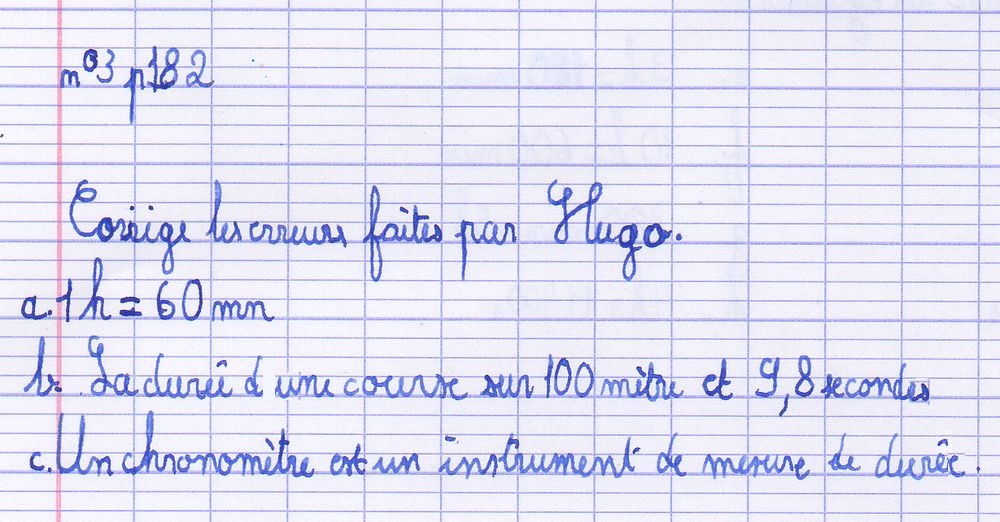 n°3 p182
Corrige les erreurs faites par Hugo.
a. 1 h = 60 mn
b. La durée d une course sur 100 mètre et 9,8 secondes
c. Un chronomètre est un instrument de mesure de durée.